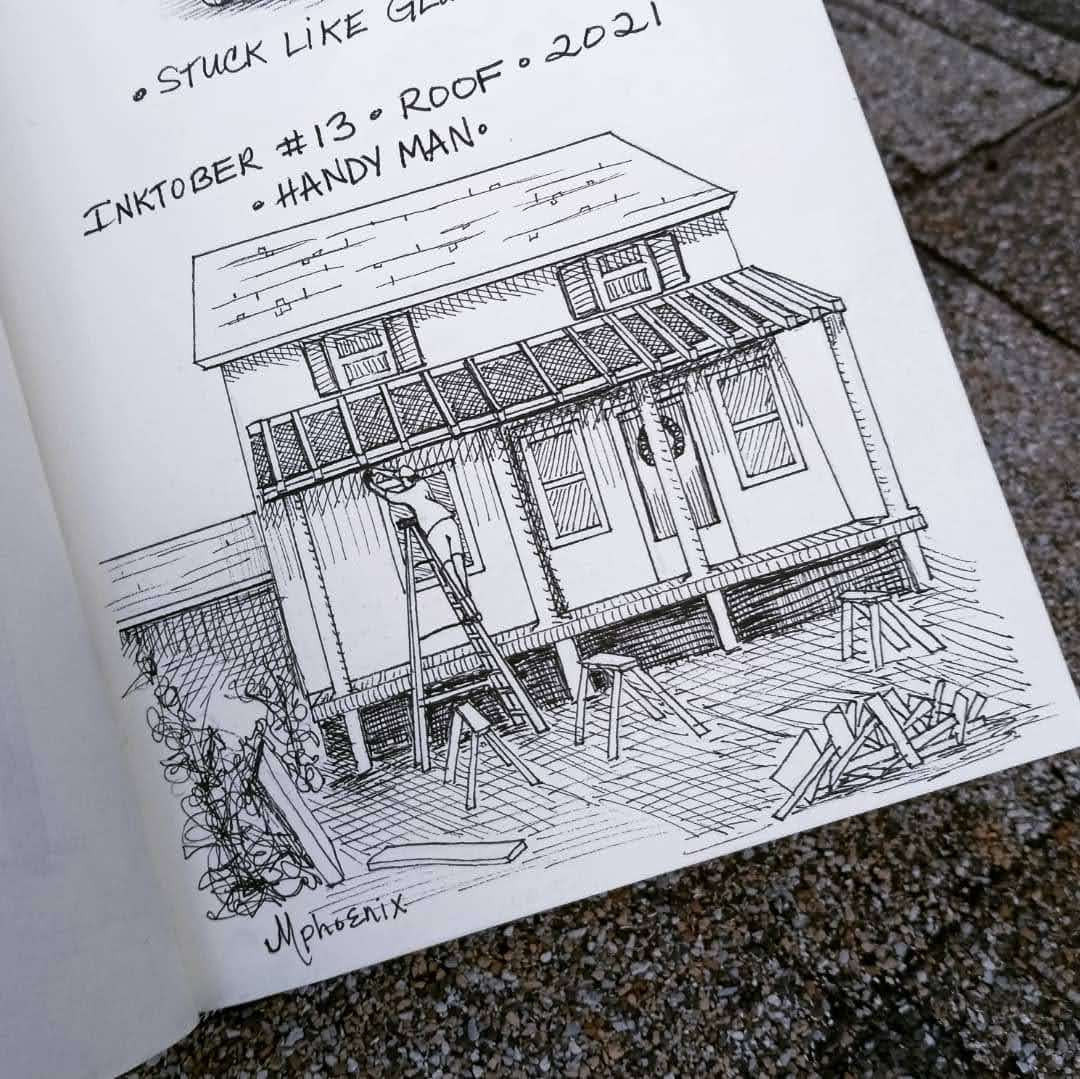 • STUCK LIKE
INKTOBER #13 • ROOF • 2021
• HANDY MAN •
Mphoenix